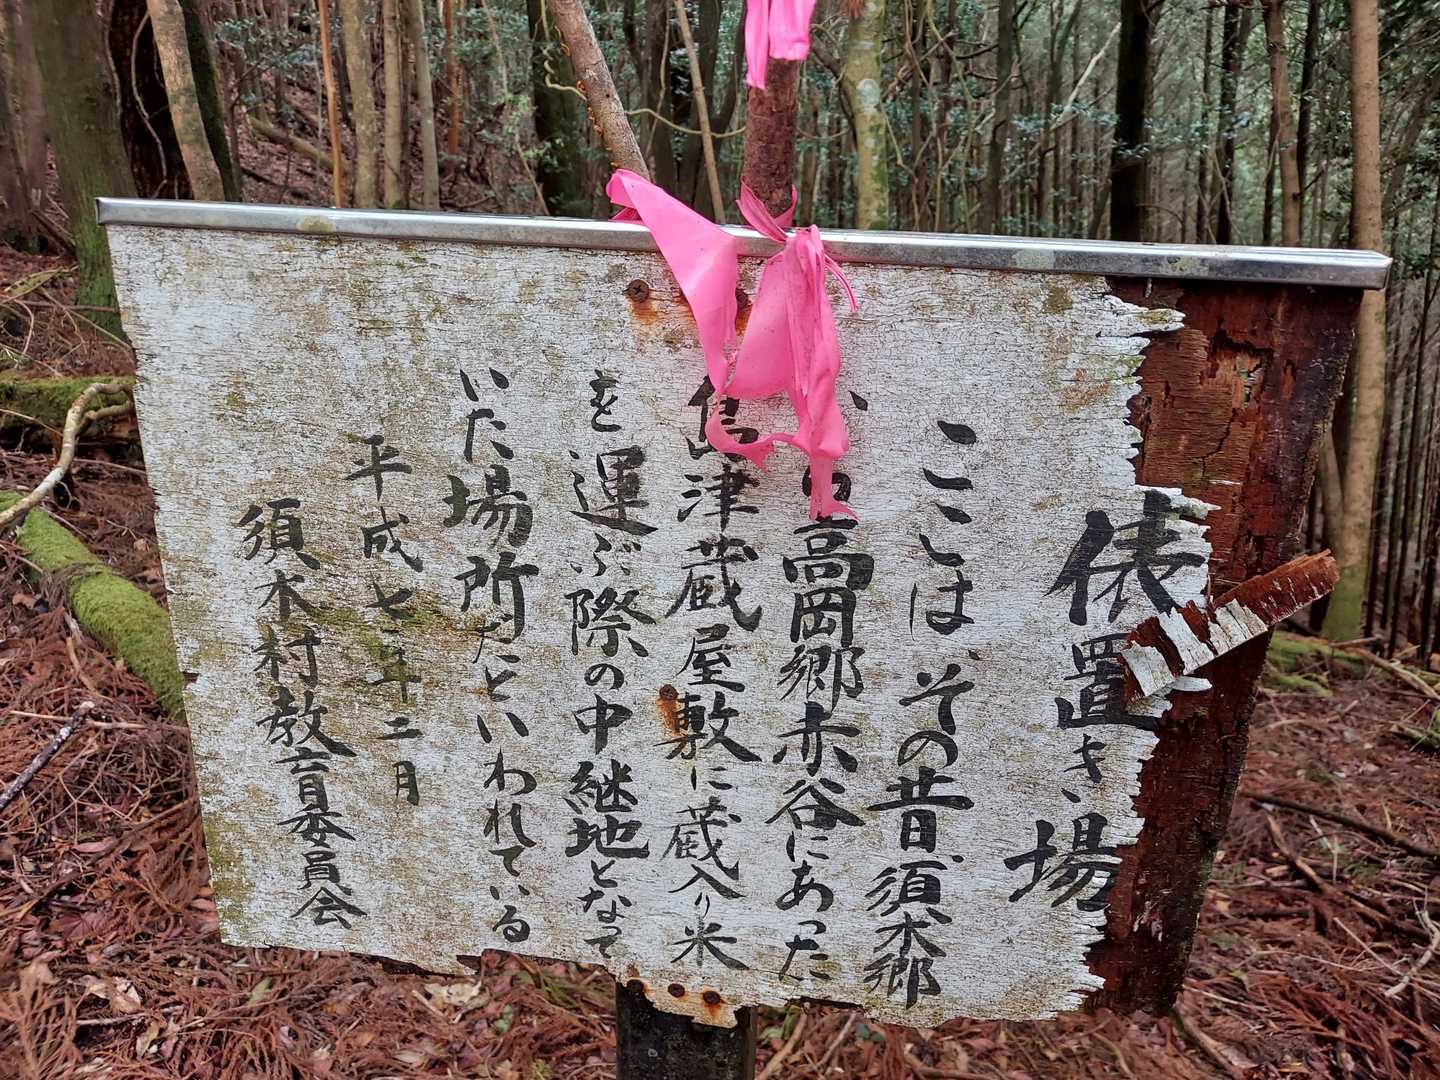 俵置き場
ここは、その昔、須木郷
、高岡郷赤谷にあった
島津蔵屋敷に蔵入り米
を運ぶ際の中継地となって
いた場所だといわれている
平成七年二月
須木村教育委員会